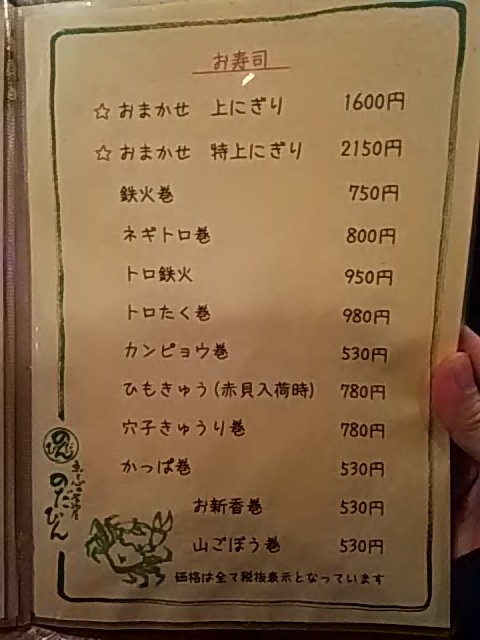 お寿司
☆おまかせ 上にぎり 1600円
☆おまかせ 特上にぎり 2150円
鉄火巻 750円
ネギトロ巻 800円
トロ鉄火 950円
トロたく巻 980円
カンピョウ巻 530円
ひもきゅう(赤貝入荷時) 780円
穴子きゅうり巻 780円
かっぱ巻 530円
お新香巻 530円
山ごぼう巻 530円
価格は全て税抜表示となっています
のだぴん